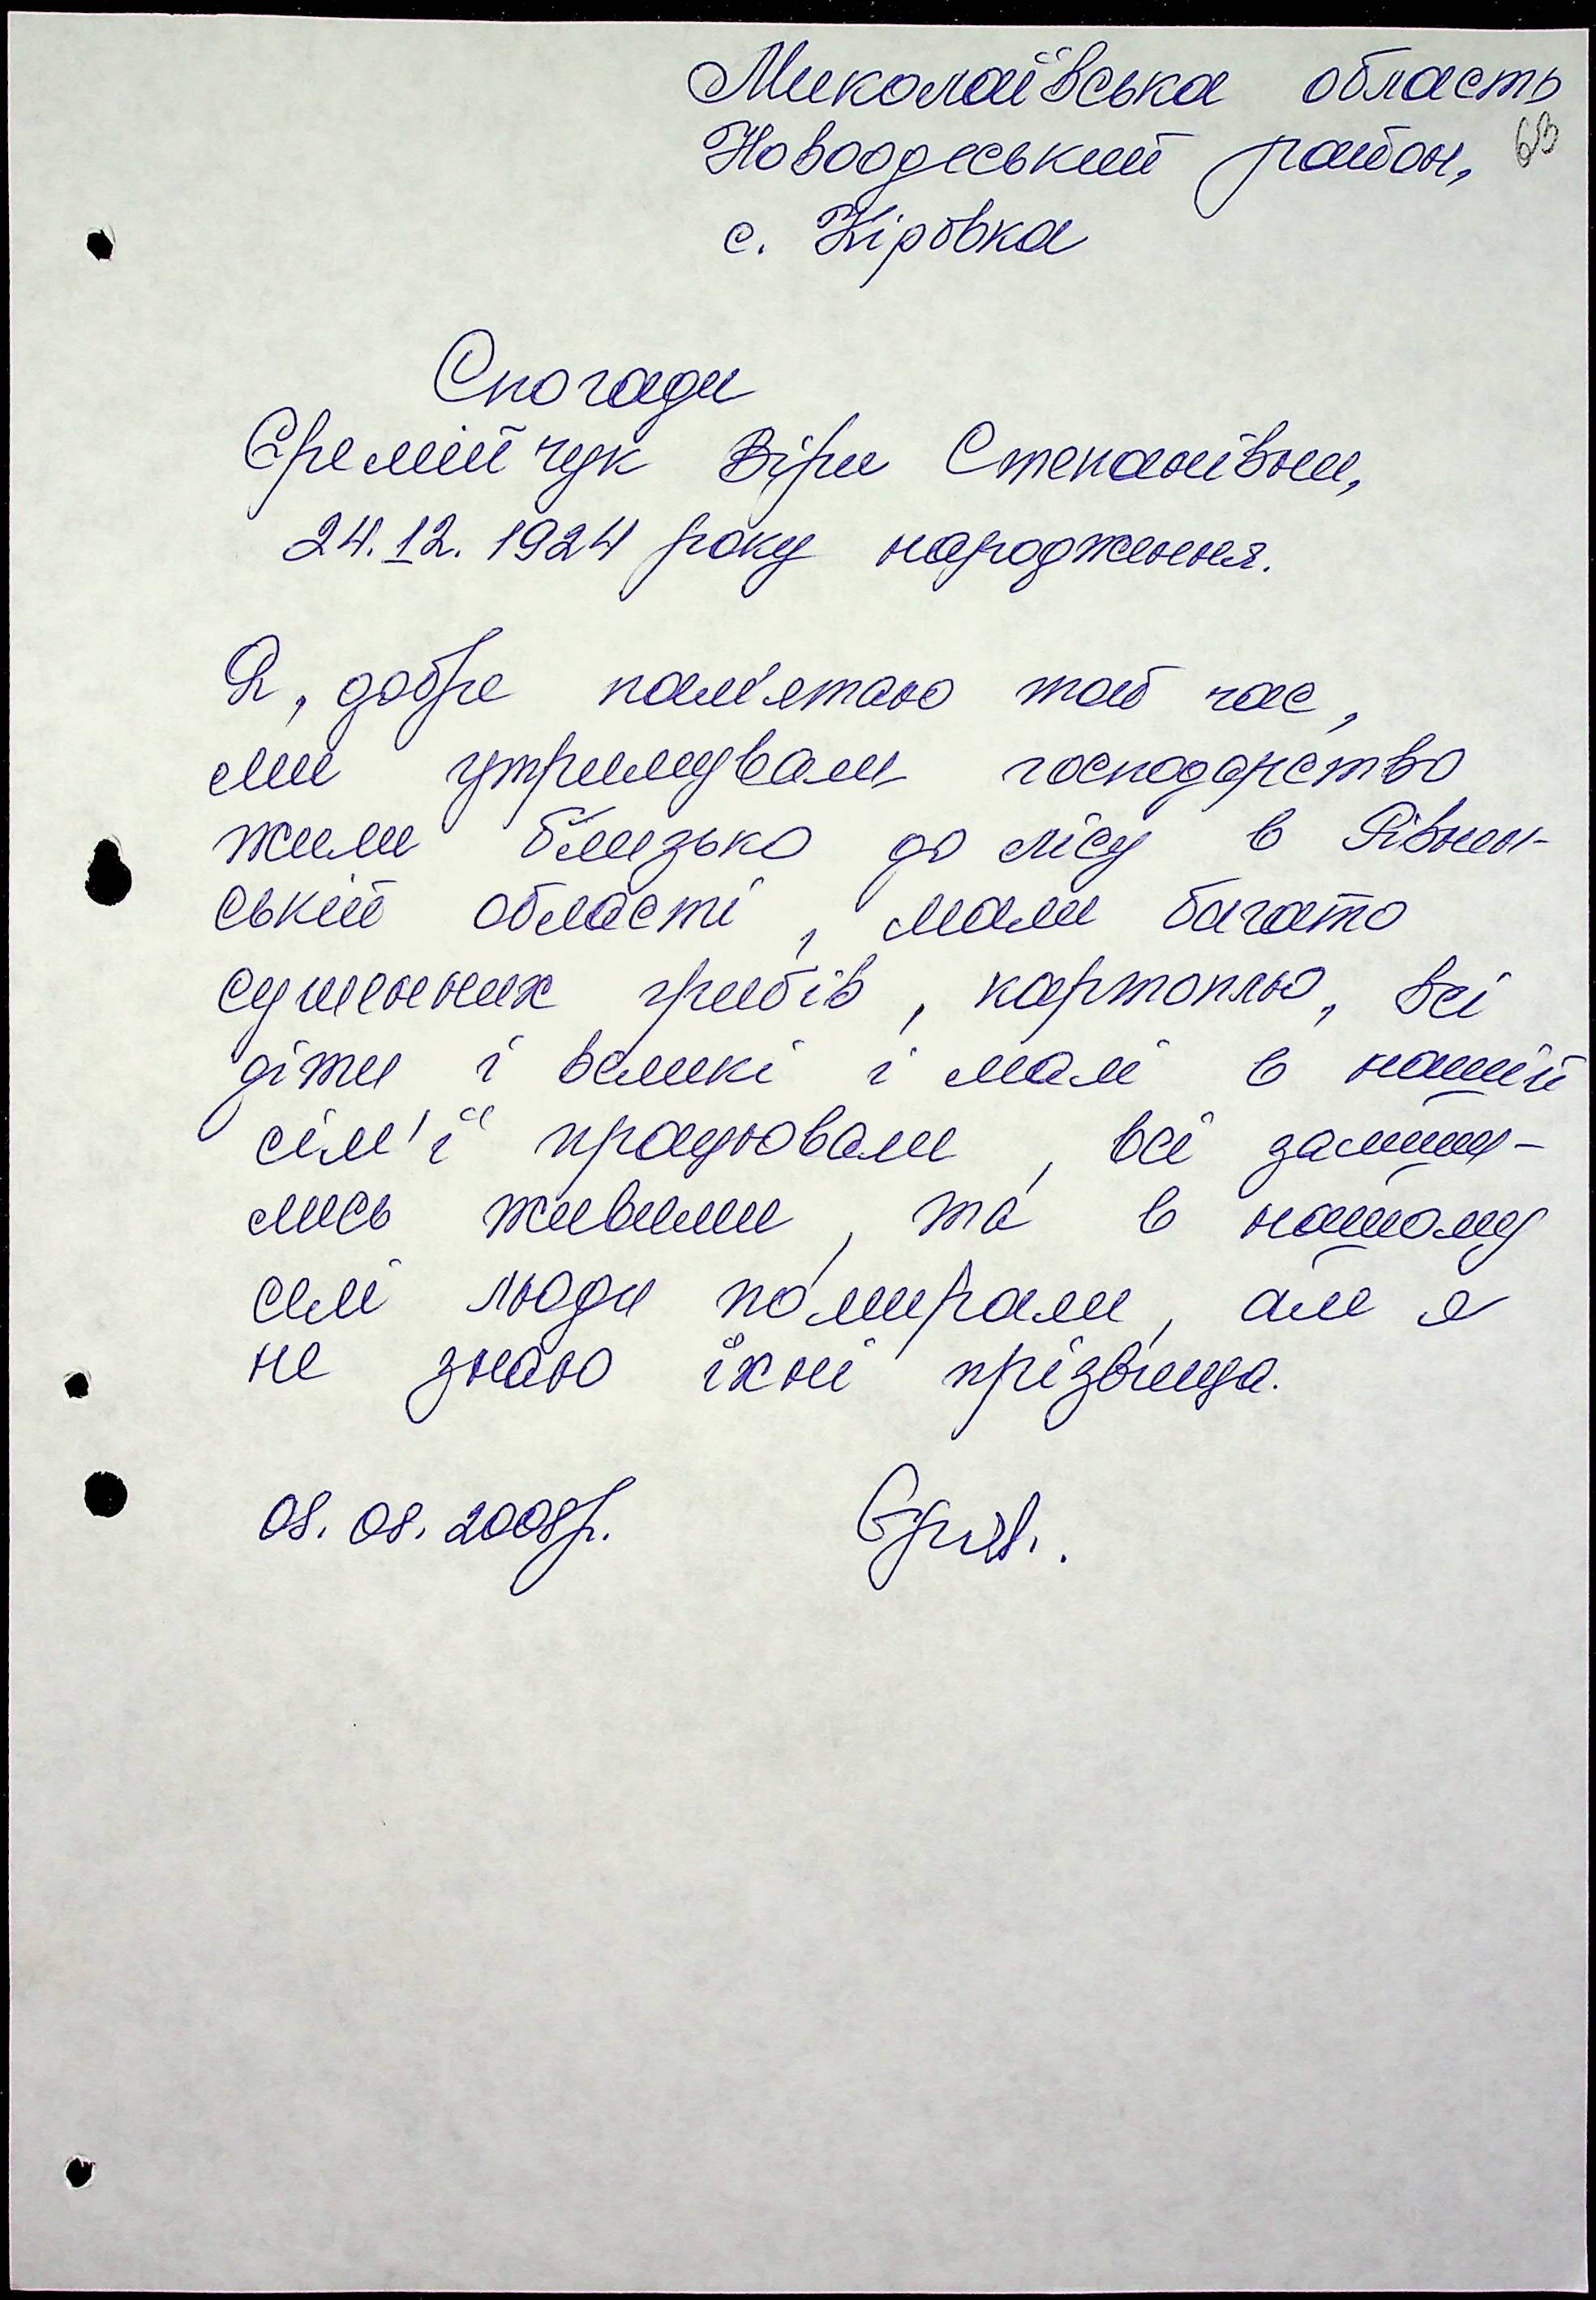 Миколаївська область
Новоодеський район,
63
с. Кіровка
Спогади
Єремійчук Віри Степанівни,
24.12.1924 року народження.
Я, добре пам'ятаю той час,
ми утримували господарство
жили близько до лісу в Рівнен-
ській області, мали багато
сушенних грибів, картоплю, всі
діти і великі і малі в нашій
сім'ї працювали, всі залиши-
лись живими, та в нашому
селі люди помирали, але я
не знаю їхні прізвища.
08.08.2008р.